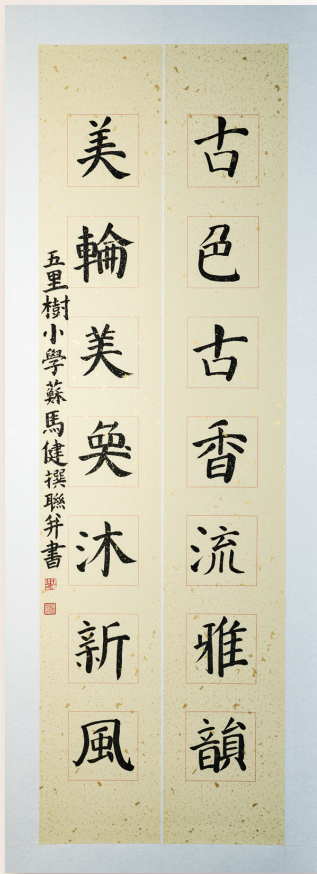 古色古香流雅韻
美輪美奐沐新風
五里樹小學蘇馬健撰聯并書